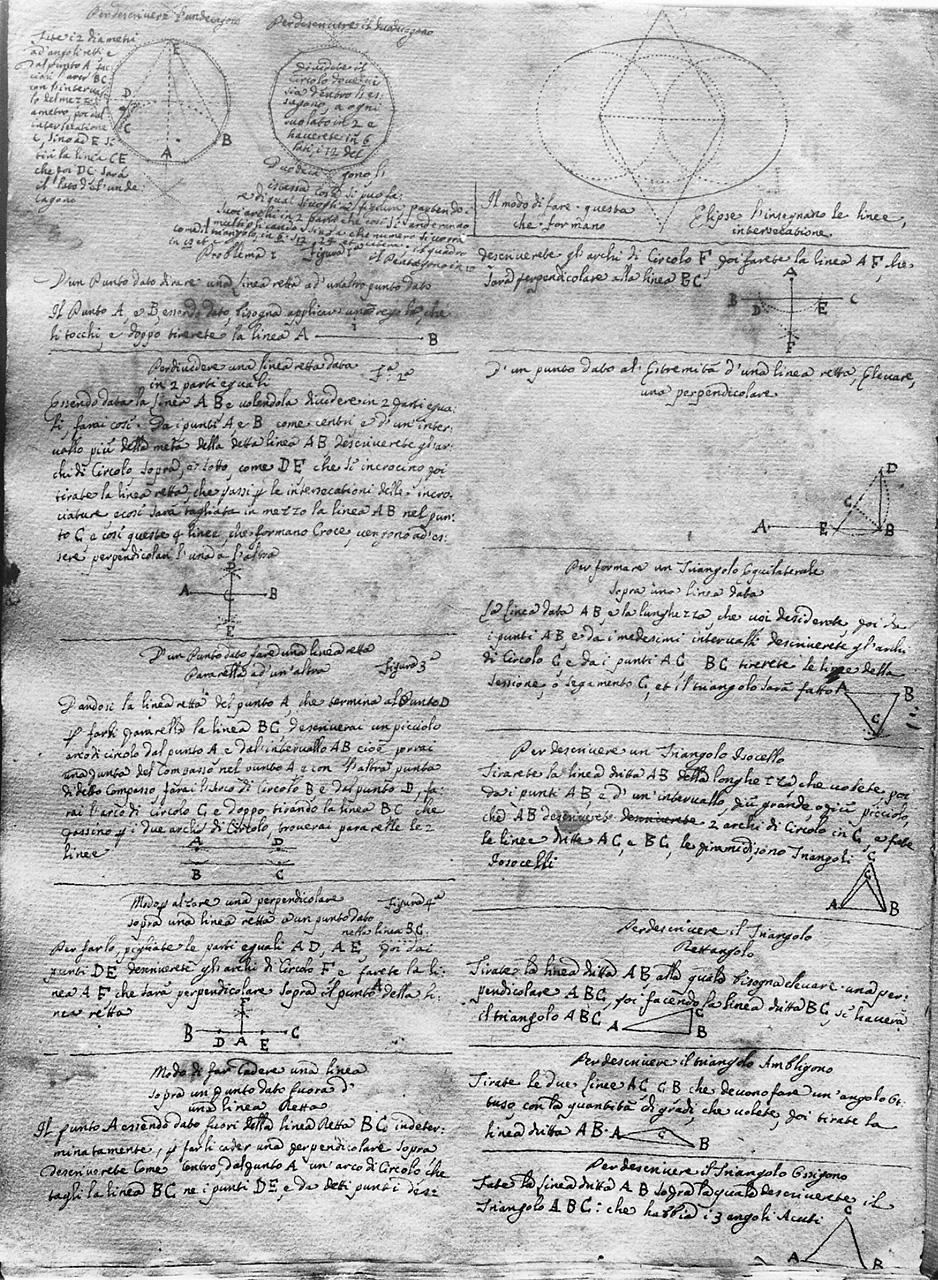 Per descrivere l'undecagono
Fate i 2 diametri
ad angoli retti e
dal punto A
l'arco BC
con
lo del mezzo di
ametro, poi dal
intersecatione
sino ad E si
tiri la linea CE
che poi DC sarà
il lato d'un unde
cagono
E
D
C
A
B
Per descrivere il duodecagono
dividete il
circolo
sia dentro l'es
sagono, a ogni
suo lato in 2 e
haverete in 6
lati, i 12 del
Duodeca gono si
istessa cosa si puo fa
re di qual si voglia figura partendo
suoi archi in 2 parti che cosi si anderanno
multiplicando sino a che numero si vorrà
Problema 1 Figura 1
Il modo di fare questa Elipse l'insegnano le linee,
che formano intersecatione
D'un Punto dato tirare una linea retta ad un altro punto dato
Il Punto A e B essendo dato, bisogna applicar una regola, che
li tocchi, e doppo tirerete o la linea A B
Per dividere una linea retta data fa 2a
in 2 parti eguali
Essendo data la linea AB e volendola dividere in 2 parti egua
li, farai cosi. Da i punti A e B come centri e d'un inter
vallo più della metà della detta linea AB descriverete gl'ar
chi di Circolo sopra, e sotto, come DE che si incrocino poi
tirate la linea retta, che passi p le intersecationi delle incro
ciature e cosi sarà tagliata in mezzo la linea AB nel pun
to C e cosi queste 4 linee, che formano Croce, vengono ad es
sere perpendicolari l'una a l'altra
D
A C B
E
D'un Punto dato fare una linea retta
Pararella ad un'altra Figura 3a
Dandosi la linea retta del punto A, che termina al Punto D
p farli pararella la linea BC, descriverai un picciolo
arco di circolo dal punto A e dal intervallo AB cioè porrai
una punta del Compasso nel punto A e con l'altra punta
di detto Compasso farai l'arco di Circolo B e dal punto D, fa
rai l'arco di Circolo C e doppo tirando la linea BC che
passino p i due archi di Circolo, troverai pararelle le 2
linee
A D
B C
Modo p alzare una perpendicolare Figura 4a
sopra una linea retta a un punto dato
nella linea BC
Per farlo, pigliate le parti equali AD, AE poi dai
punti DE descriverete gli archi di Circolo F e farete la li
nea AF che sarà perpendicolare sopra il punto A della li
nea retta
F
B D A E C
Modo di far Cadere una linea
sopra un punto dato fuora d'
una linea Retta
Il punto A essendo dato fuori della linea Retta BC indeter
minatamente, p farli cader una perpendicolare sopra
descriverete come Centro, dal punto A un'arco di Circolo che
tagli la linea BC ne i punti DE, e da detti punti des
descriverete gli archi di Circolo F poi farete la linea AF, che
sarà perpendicolare alla linea BC
A
B D E C
F
D'un punto dato al Estremità d'una linea retta, Elevare,
una perpendicolare
D
C
A E B
Per formare un Triangolo Equilaterale
sopra una linea data
La linea data AB e la lunghezza che voi desiderate poi da
i punti AB e da i medesimi intervalli descriverete gl'archi
di Circolo C e da i punti AC BC tirerete le linee della
sessione, o segamento C, et il triangolo sarà fatto
A B
C
Per descrivere un Triangolo Isocello
Tirarete la linea dritta AB della longhezza che volete poi
da i punti AB e d'un'intervallo, più grande o più picciolo,
che AB descrivete descriverete 2 archi di Circolo in C, e fate
le linee dritte AC, e BC, le piramidi sono Triangoli
Isocelli
C
A B
Per descrivere il Triangolo
Rettangolo
Tirate la linea dritta AB alla quale bisogna elevare una per
pendicolare ABC, poi facendo la linea dritta BC, si haverà
il triangolo ABC
A C
B
Per descrivere il triangolo Ambligono
Tirate le due linee AC CB che devono fare un'angolo Ot
tuso con la quantità di gradi, che volete, poi tirate la
linea dritta AB
A C B
Per descrivere il Triangolo Ossigono
Fate la linea dritta AB sopra la quale descriverete il
Triangolo ABC: che habbia i 3 angoli Acuti
C
A B